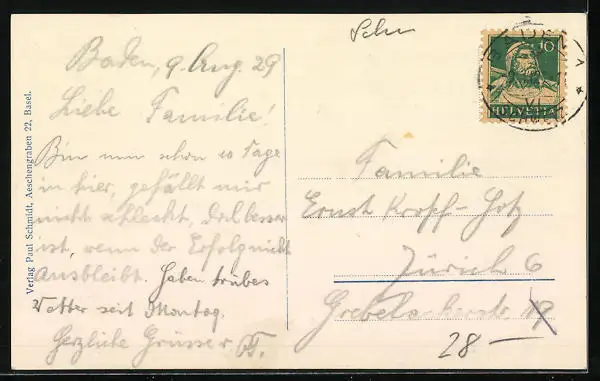 Schw
Baden, 9. Aug. 29
Liebe Familie!
Bin nun schon 10 Tage
in hier, gefällt mir
nicht schlecht, besser
ist, wenn der Erfolg nicht
ausbleibt. Haben trübes
Wetter seit Montag.
Herzliche Grüsse
Verlag Paul Schmidt, Aeschengraben 22, Basel.
10
HELVETIA
BADEN
Familie
Ernst Kropf-Hotz
Zürich 6
19
28